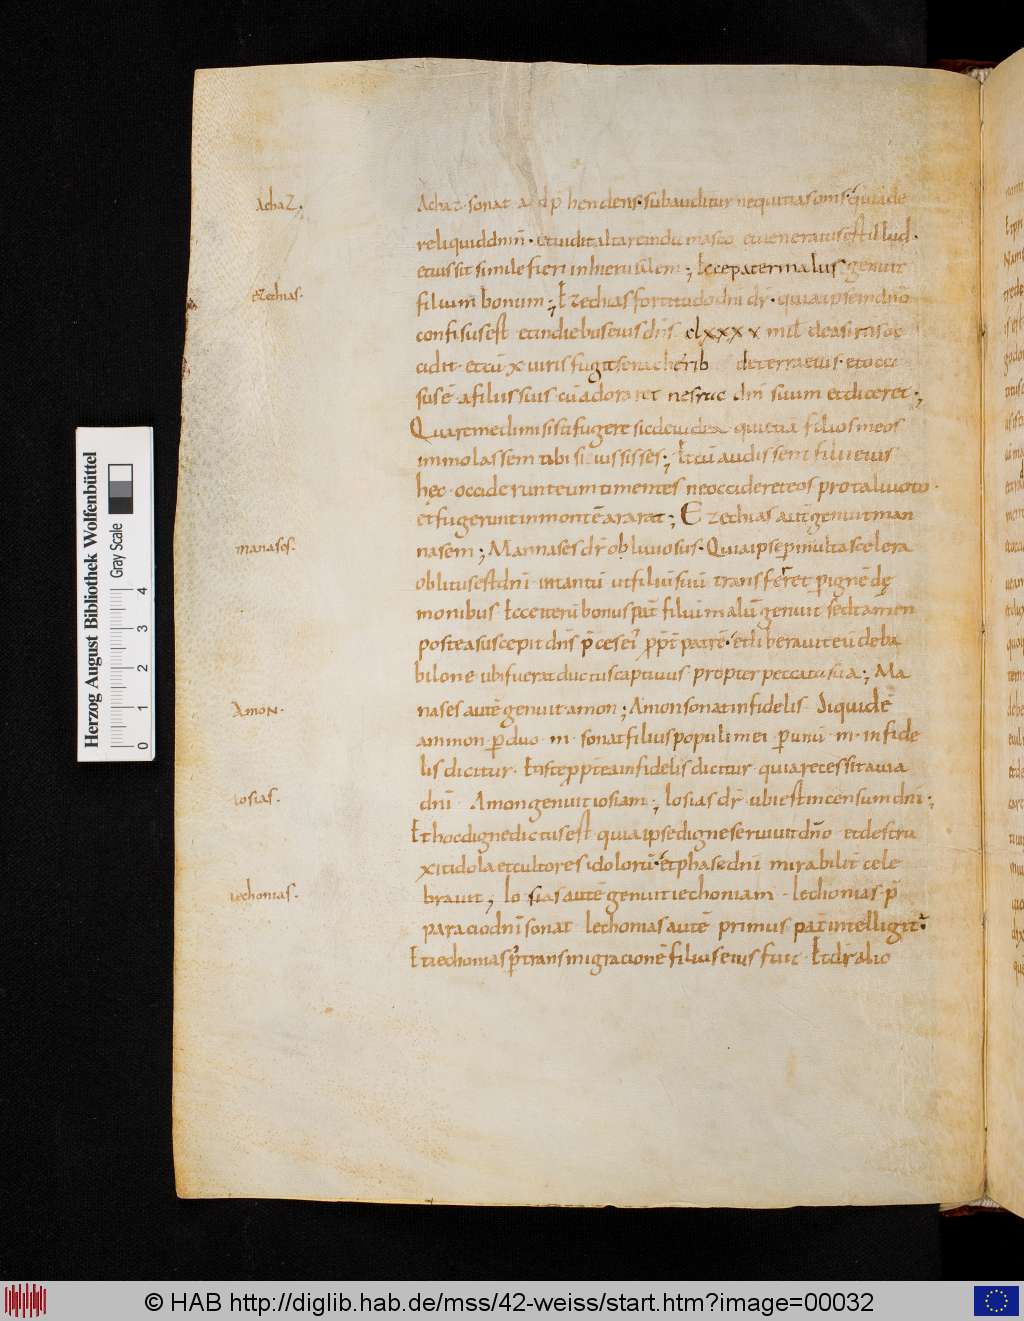 Achaz.
Achaz sonat adp̄hendens. subauditur nequitias om̄s. quia de
reliquid dn̄m. et uidit altare in damasco et ueneratus est illud.
et iussit simile fieri in hierusalem; Ecce pater malus genuit
ezechias.
filium bonum; Ezechias fortitudo dn̄i dr̄. quia ipse in dn̄o
confisus est et in diebus eius dn̄s clxxxv mil de asiriis oc
cidit. et cū x uiris fugit senacherib de terra eius. et occi
sus ē a filiis suis cū adoraret nesrac dn̄m suum et diceret;
Quare me dimisisti fugere sic de iudea quia etiā filios meos
immolassem tibi si iussisses; Et cū audissent filii eius
hęc. occiderunt eum timentes ne occideret eos pro tali uoto.
et fugerunt in montē ararat; Ezechias autē genuit man
manases.
nasem; Mannases dr̄ obliuiosus. Quia ipse p multa scelera
oblitus est dn̄i in tantū ut filiū suū transferret p ignē dę
monibus Ecce iterū bonus pat̄ filiū malū genuit sed tamen
postea suscepit dn̄s p̄ces ei' pp̄t patrē. et liberauit eū de ba
bilone ubi fuerat ductus captiuus propter peccata sua; Ma
Amon.
nases autē genuit amon; Amon sonat infidelis Siquidē
ammon p duo .m. sonat filius populi mei p unū .m. infide
lis dicitur. Et iste ppterea infidelis dicitur. quia recessit a uia
Iosias.
dn̄i. Amon genuit iosiam; Iosias dr̄ ubi est incensum dn̄i;
Et hoc digne dictus est quia ipse digne seruiuit dn̄o et destru
xit idola et cultores idolorū. et phase dn̄i mirabilit̄ cele
iechonias.
brauit; Iosias autē genuit iechoniam. Iechonias p̄
paracio dn̄i sonat Iechonias autē primus pat̄ intelligit̄.
Et iechonias p' transmigracionē filius eius fuit. Et dr̄ alio
Herzog August Bibliothek Wolfenbüttel
Gray Scale
0 1 2 3 4
© HAB http://diglib.hab.de/mss/42-weiss/start.htm?image=00032